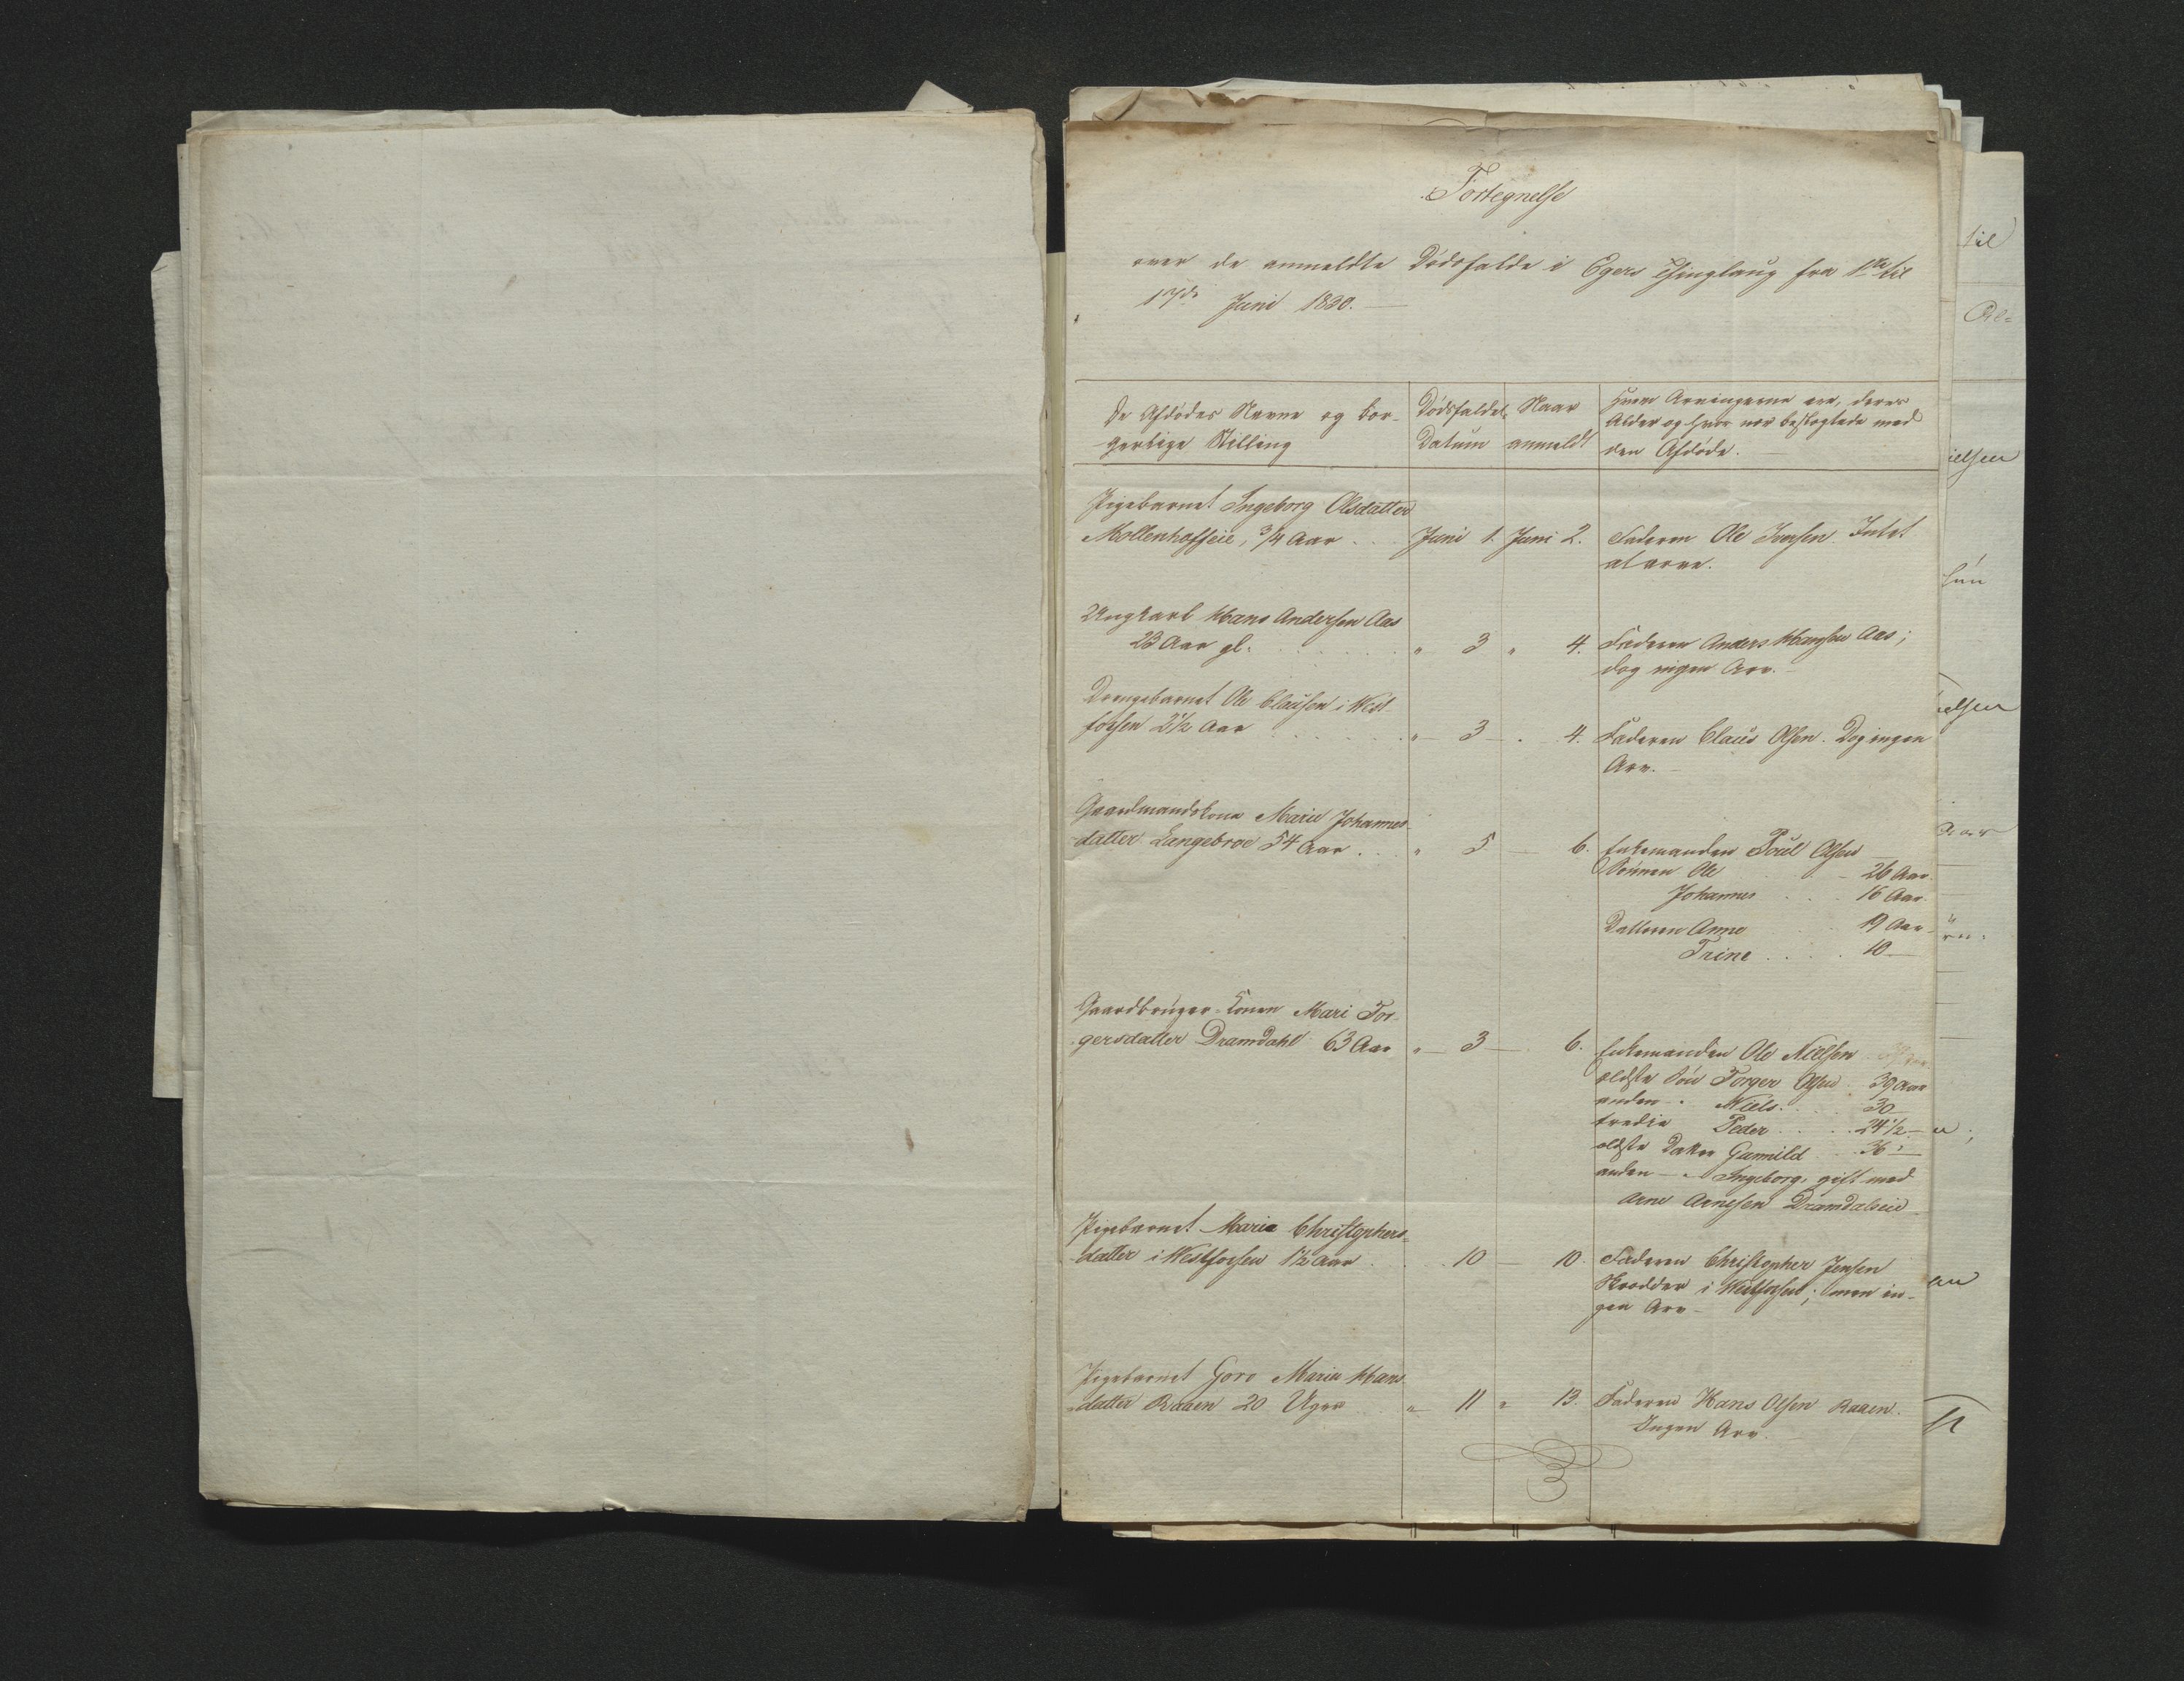 Fortegnelse
over de anmeldte Dödsfalde i Egers Thinglaug fra 1ste til
17de Juni 1830.
De Afdödes Navne og bor-
gerlige Stilling
Dödsfaldets
Datum
Naar
anmeldt
Hvem Arvingerne ere, deres
Alder og hvor nær beslægtede med
den Afdöde.
Pigebarnet Ingeborg Olsdatter
Möllenhofseie, 3/4 Aar . . Juni 1. Juni 2. Faderen Ole Iversen. Intet
at arve.
Ungkarl Hans Andersen Aas
23 Aar gl. . . . . . " 3 " 4. Faderen Anders Hansen Aas;
dog ingen Arv.
Drengebarnet Ole Clausen i Vest-
fossen 2 1/2 Aar . . . . . " 3 - . 4. Faderen Claus Olsen. Dog ingen
Arv. -
Gaardmandskone Marie Johannes-
datter Langebroe 54 Aar . . " 5 - 6. Enkemanden Poul Olsen
Sönnen Ole - 26 Aar.
Johannes . . . 16 Aar.
Datteren Anne 19 Aar
Trine . . . . 10 -
Gaardbruger-Konen Mari Tor-
gersdatter Dramdahl 63 Aar " - 3 - 6. Enkemanden Ole Nielsen
ældste Sön Torger Olsen . 39 Aar
anden - . Niels . . . 30 -
tredie Peder . . . 24 1/2 -
ældste Datter Gunnild . . 36 -
anden - " Ingeborg, gift med
Arne Arnesen Dramdalseie
Pigebarnet Maria Christophers-
datter i Westfossen 1 1/2 Aar . . . 10 - 10. Faderen Christopher Jensen
Skrædder i Westfossen; men in-
gen Arv -
Pigebarnet Goro Maria Hans-
datter Raaen 20 Uger . . " 11 " 13. Faderen Hans Olsen Raaen.
Ingen Arv.
til
Ole-
ielsen